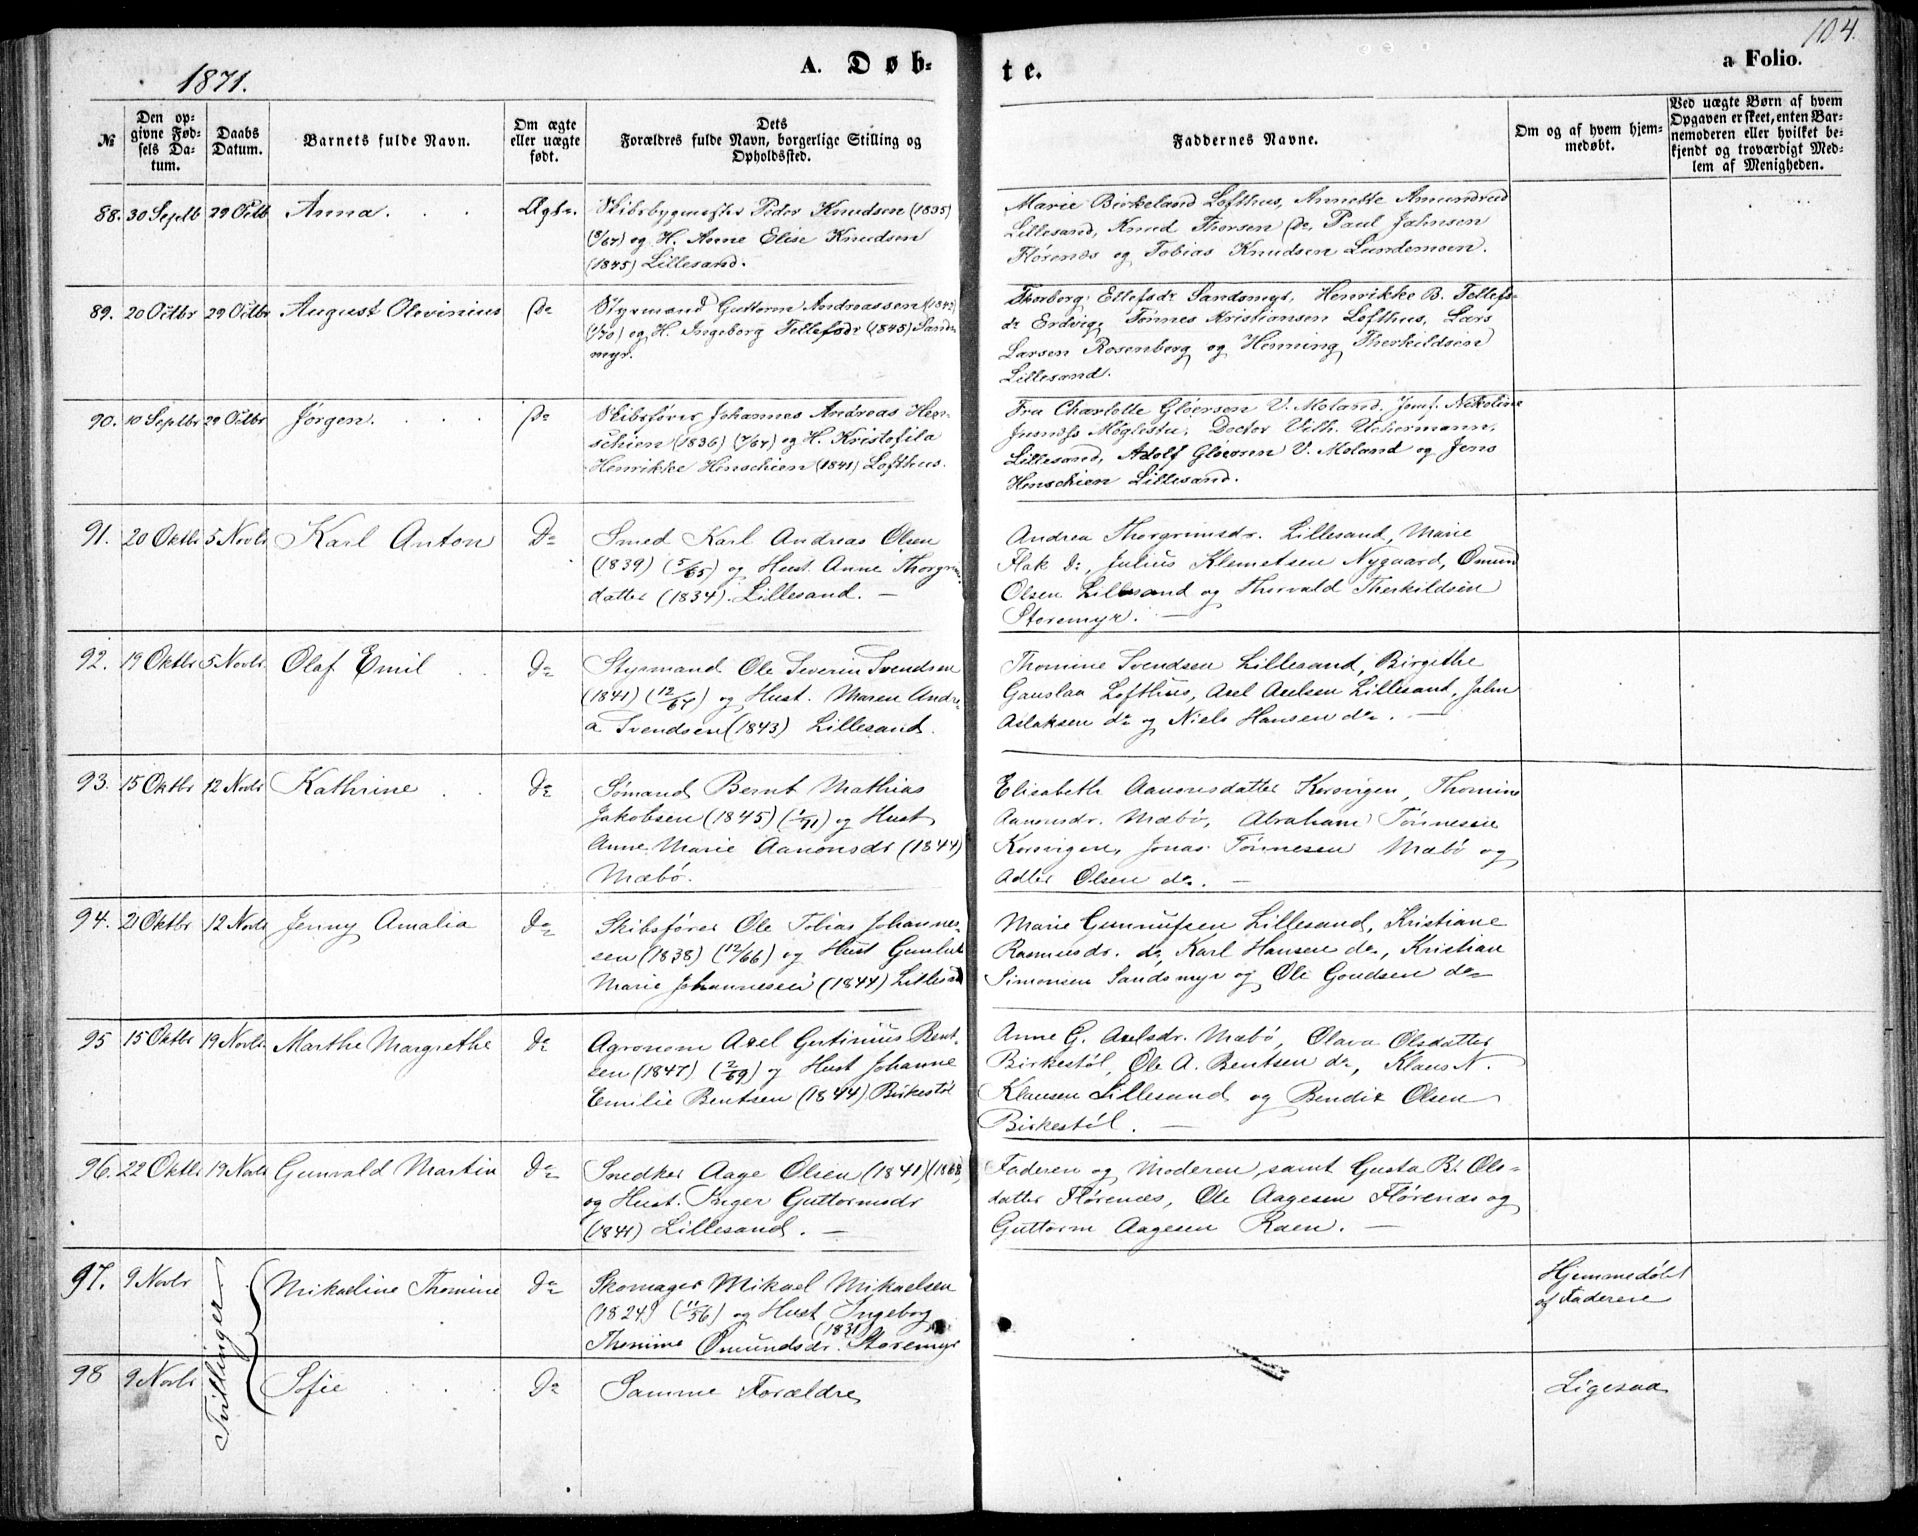 104.
1871.
A. Døb-
te.
a Folio.
№
Den op-
givne Fød-
sels Da-
tum.
Daabs
Datum.
Barnets fulde Navn.
Om ægte
eller uægte
født.
Dets
Forældres fulde Navn, borgerlige Stilling og
Opholdssted.
Faddernes Navne.
Om og af hvem hjem-
medøbt.
Ved uægte Børn af hvem
Opgaven er skeet, enten Bar-
nemoderen eller hvilket be-
kjendt og troværdigt Med-
lem af Menigheden.
88. 30 Septb 29 Octb Anna . . . Ægte.
Skibsbygmester Peder Knudsen (1835)
(8/67) og H. Anne Elise Knudsen
(1845) Lillesand.
Marie Birkeland Lofthus, Annette Amundrud
Lillesand, Knud Thorsen Do, Paul Jahnsen
Flørenæs og Tobias Knudsen Lundemoen.
89. 20 Octbr 29 Octbr August Olevinius Do
Styrmand Guttorm Andreassen (1842)
(1/70) og H. Ingeborg Tellefsdr (1845) Sands-
myr.
Thorborg Ellefsdr Sandsmyr, Henrikke B. Tellefs-
dr Erdvig, Tønnes Kristiansen Lofthus, Lars
Larsen Rosenberg og Henning Therkildsen
Lillesand.
90. 10 Septbr 29 Octbr Jørgen . . . Do
Skibsfører Johannes Andreas Hen-
schien (1836) (7/67) og H. Kristofila
Henrikke Henschien (1841) Lofthus.
Fru Charlotte Gløersen V. Moland, Jomf. Nikoline
Møglestu, Doctor Vilh. Uchermann,
Lillesand, Adolf Gløersen V. Moland og Jens
Henschien Lillesand.
91. 20 Oktbr 5 Novbr Karl Anton Do
Smed Karl Andreas Olsen
(1839) (5/65) og Hust. Anne Thorgrims-
datter (1834). Lillesand. —
Andrea Thorgrimsdr. Lillesand, Marie
Flak Do, Julius Klemetsen Nygaard, Omund
Olsen Lillesand og Thorvald Therkildsen
Storemyr. —
92. 19 Oktbr 5 Novbr. Olaf Emil . . Do
Styrmand Ole Severin Svendsen
(1841) (12/67) og Hust. Maren Andre-
a Svendsen (1843) Lillesand.
Thomine Svendsen Lillesand, Birgithe
Gauslaa Lofthus, Axel Axelsen Lillesand, John
Aslaksen do og Niels Hansen do. —
93. 15 Oktbr 12 Novbr Kathrine . . Do
Sømand Bernt Mathias
Jakobsen (1845) (1/71) og Hust
Anne Marie Aanonsdr (1844)
Mæbø.
Elisabeth Aanonsdatter Korsvigen, Thomine
Aanonsdr. Mæbø, Abraham Tønnesen
Korsvigen, Jonas Tønnesen Mæbø og
Adler Olsen do. —
94. 21 Oktbr 12 Novbr Jenny Amalia Do
Skibsfører Ole Tobias Johannes-
sen (1838) (12/66) og Hust
Marie Johannesen (1844) Lillesand
Marie Gunnufsen Lillesand, Kristiane
Rasmusdr. do, Karl Hansen do, Kristian
Simonsen Sandsmyr og Ole Goudsen do
95 15 Oktbr 19 Novbr. Marthe Margrethe Do
Agronom Axel Gertinius Bent-
sen (1847) (2/69) og Hust Johanne
Emilie Bentsen (1844) Birkestøl
Anne G. Axelsdr. Mæbø, Olava Olsdatter
Birkestøl, Ole A. Bentsen do, Klaus N.
Klausen Lillesand og Bendix Olsen
Birkestøl. —
96. 22 Oktbr 19 Novbr Gunvald Martin Do
Snedker Aage Olsen (1841) (1868)
og Hust. Inger Guttormsdr
(1841) Lillesand. —
Faderen og Moderen, samt Gusta B. Ols-
datter Flørenæs, Ole Aagesen Flørenæs og
Guttorm Aagesen Kaen. —
97. 9 Novbr Tvillinger Mikaeline Thomine Do
Skomager Mikael Mikaelsen
(1824) (11/56) og Hust Ingeborg
Thomine Omundsdr. (1831) Storemyr
Hjemmedøbt
af Faderen
98 9 Novbr Sofie . . . . Do
Samme Forældre
Ligesaa